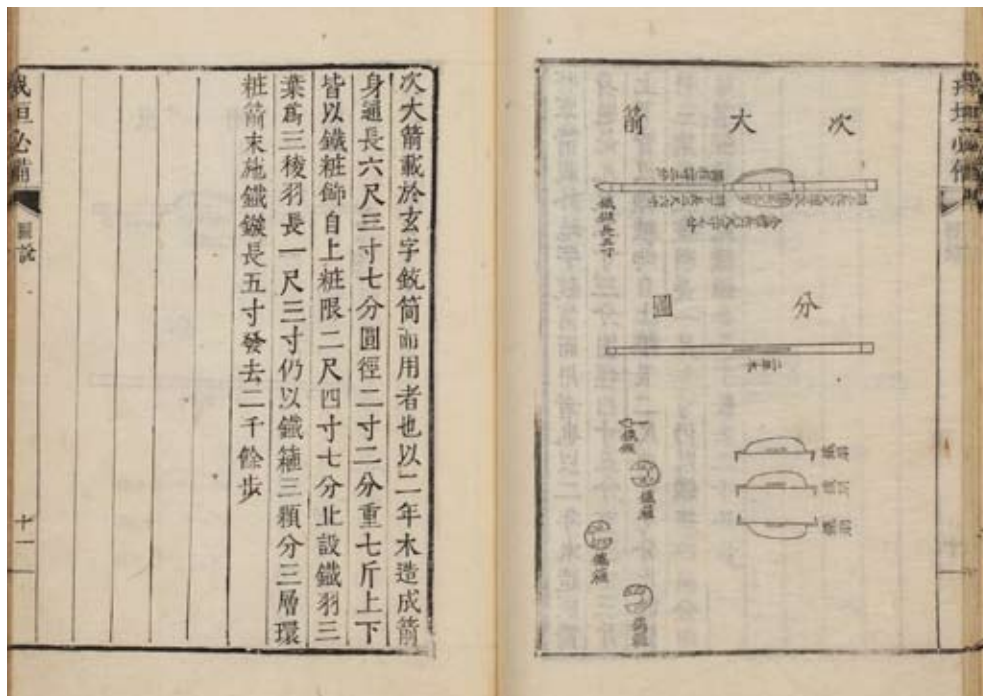 次大箭
分圖
二年木
鐵鏃
鐵箍
鐵箍
鐵箍
鐵羽
鐵羽
鐵羽
次大箭載於玄字銃筒而用者也以二年木造成箭
身通長六尺三寸七分圓徑二寸二分重七斤上下
皆以鐵粧飾自上粧限二尺四寸七分止設鐵羽三
葉爲三稜羽長一尺三寸仍以鐵箍三顆分三層環
粧箭末施鐵鏃長五寸發去二千餘步
戎垣必備
圖說
十一